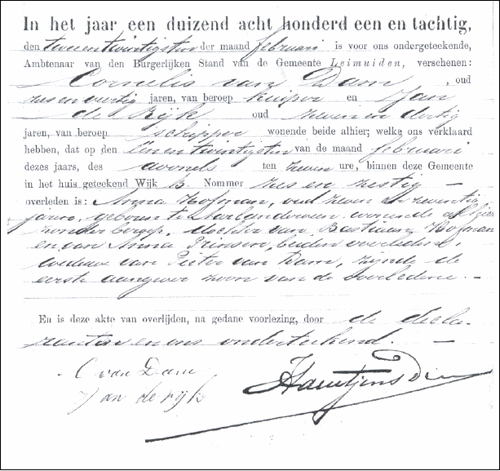 In het jaar een duizend acht honderd een en tachtig,
den tweeentwintigsten der maand februari is voor ons ondergeteekende,
Ambtenaar van den Burgerlijken Stand van de Gemeente Leimuiden, verschenen:
Cornelis van Dam, oud
zesenveertig jaren, van beroep kuiper en Jan
de Rijk oud zevenendertig
jaren, van beroep schipper wonende beide alhier; welke ons verklaard
hebben, dat op den eenentwintigsten van de maand februari
dezes jaars, des avonds ten zeven ure, binnen deze Gemeente
in het huis geteekend Wijk B Nommer zes en zestig —
overleden is: Anna Hofman, oud zeven en zeventig
jaren, geboren te wonende alhier
zonder beroep, dochter van Bastiaan Hofman
en van Anna beiden overleden,
weduwe van Pieter van Dam, zijnde de
eerste aangever zoon van de overledene. —
En is deze akte van overlijden, na gedane voorlezing, door de decla-
ranten en ons onderteekend. —
C van Dam
J an de rijk